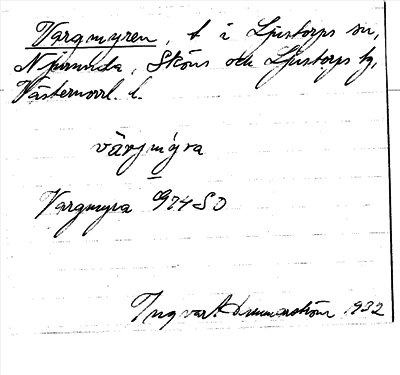 Vargmyren, t i Ljustorps sn,
Njurunda, Sköns och Ljustorps tg,
Västernorrl. l.
värjmýra
Vargmyra 974 SO
Ingvar 1932